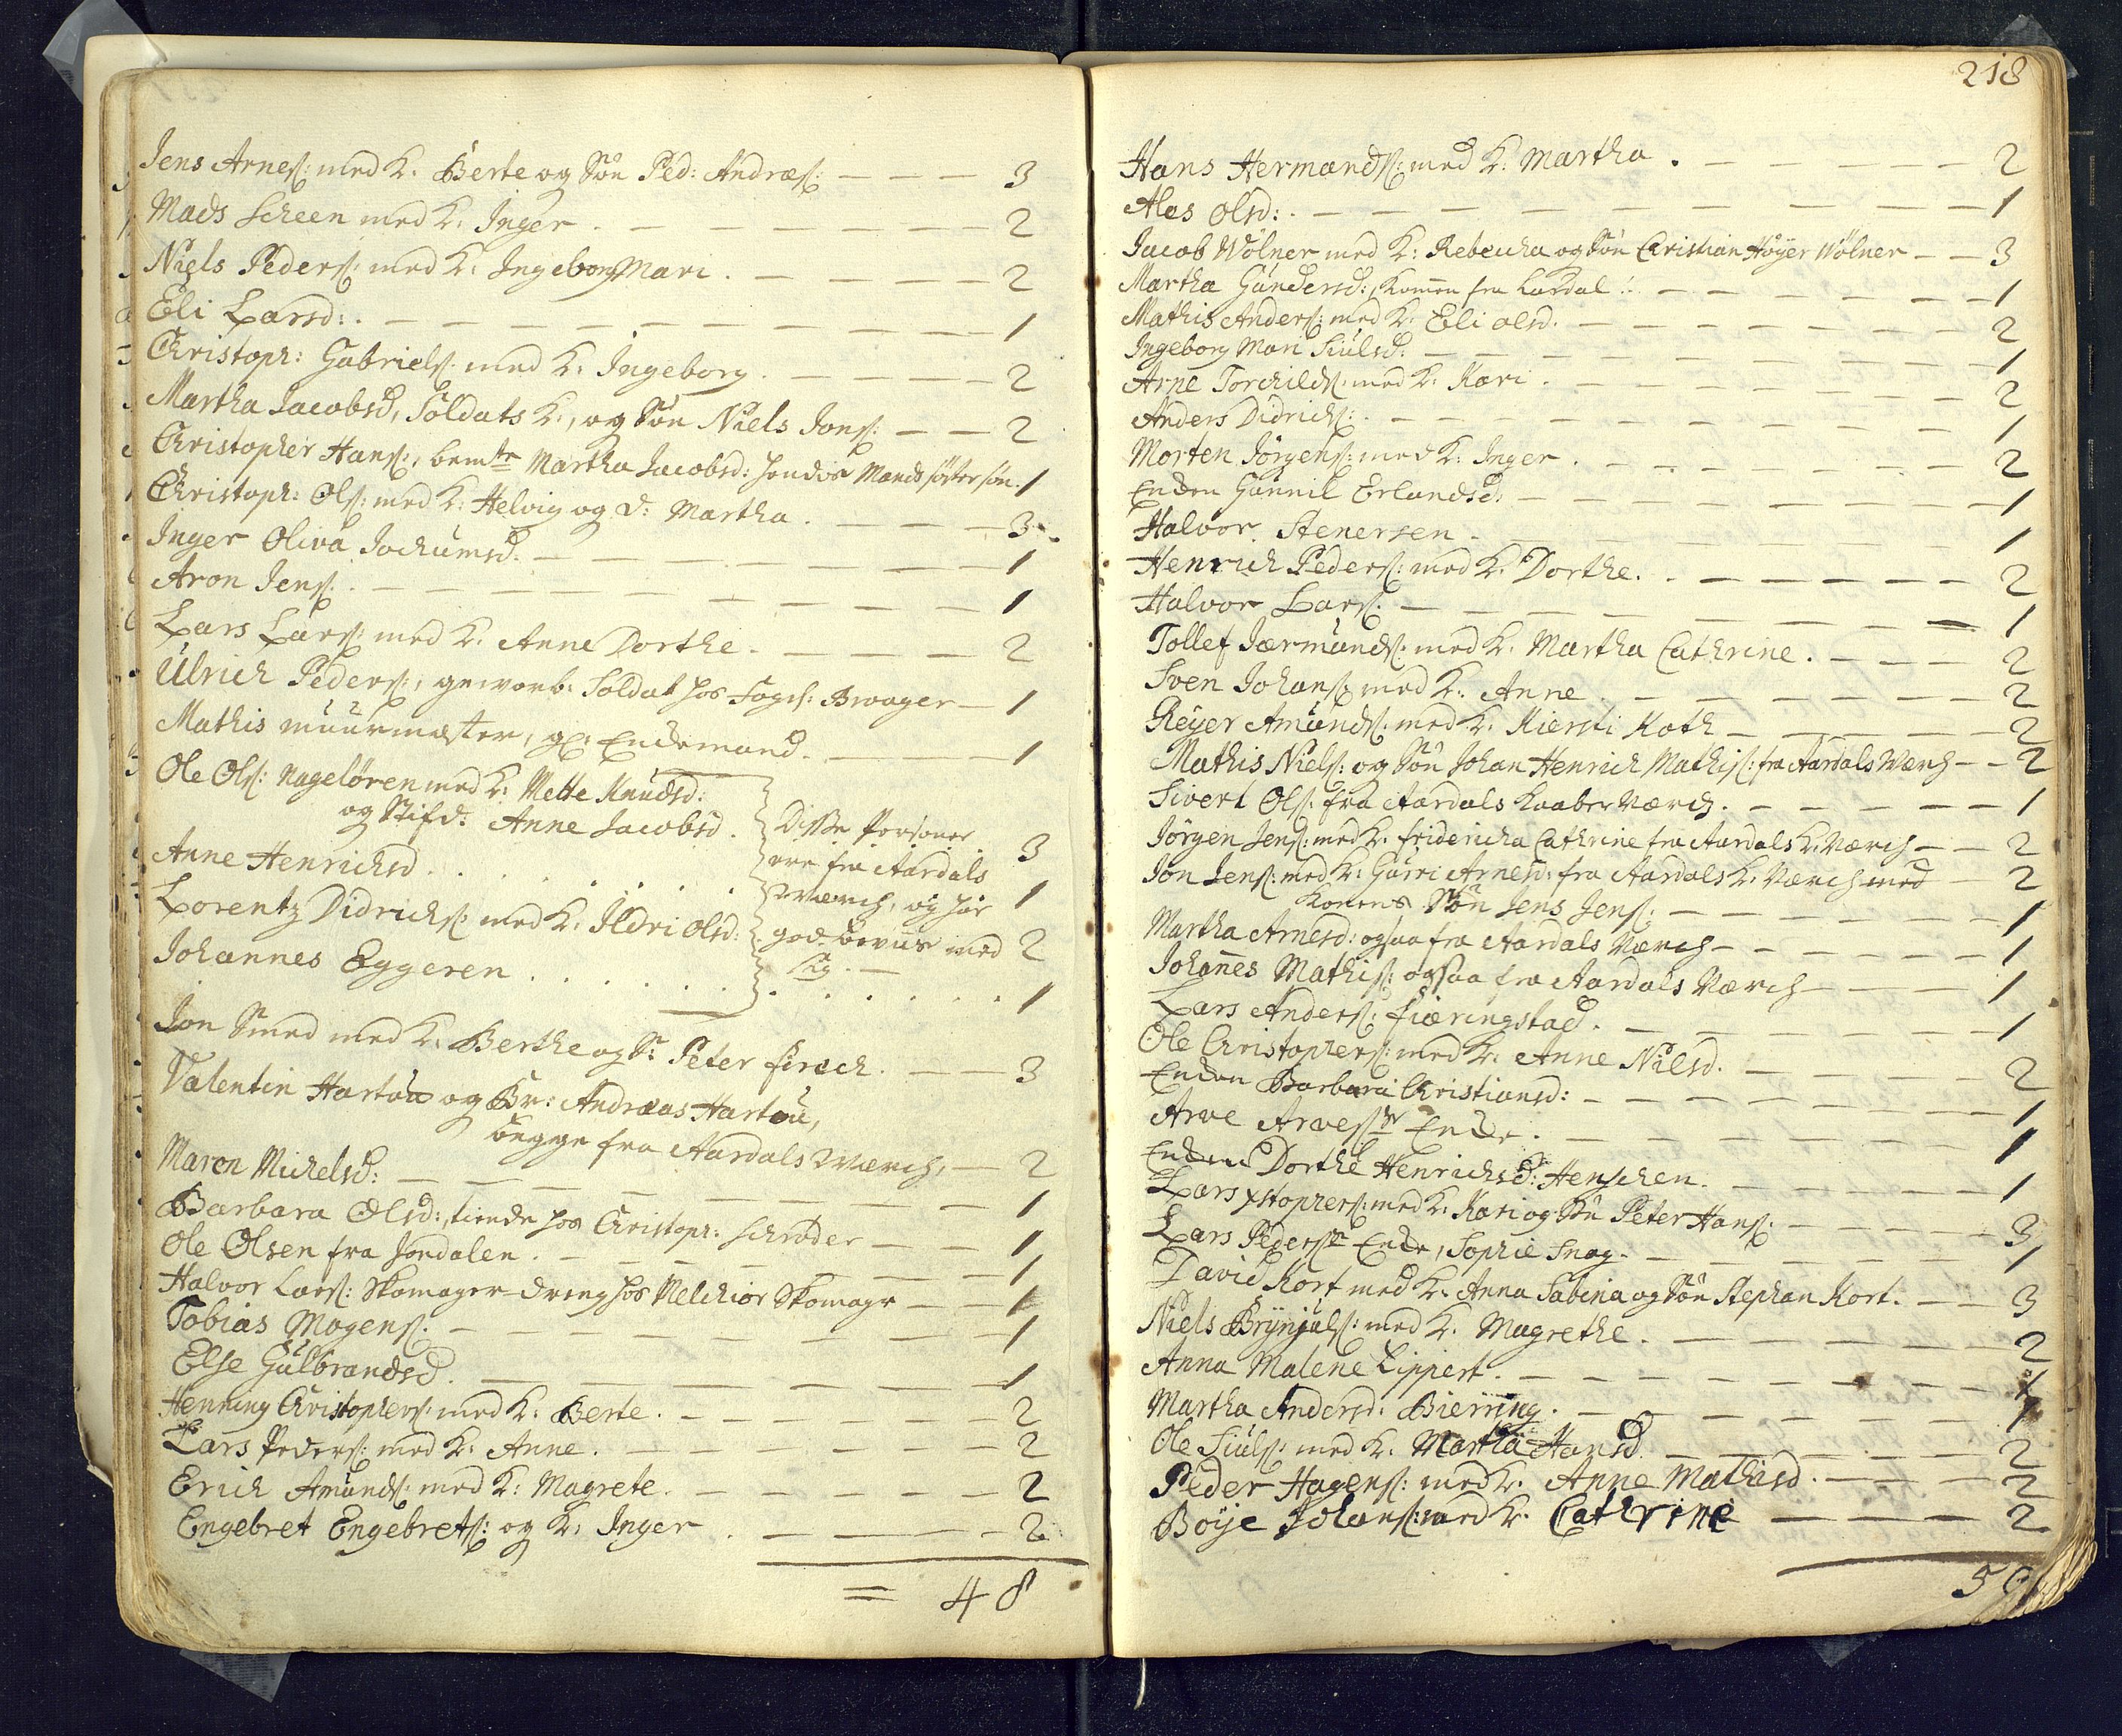 Jens Arnes: med K. Berte og Søn Ped: Andræs: — — — 3
Mads Scheen med K. Inger . — — — — — 2
Niels Peders: med K. Ingeborg Mari . — — — — 2
Eli Larsd: . — — — — — — — — 1
Christoph: Gabriels: med K. Ingeborg . — — — — 2
Martha Jacobsd, Soldats K., og Søn Niels Jons: — — 2
Christopher Hans:, bemte Martha Jacobsd: hendes Mands søster søn. 1
Christoph: Ols: med K. Helvig og D: Martha . — — — 3
Inger Oliva Jochumsd. — — — — — — 1
Aron Jens: . — — — — — — — — 1
Lars Lars: med K. Anne Dorthe . — — — — 2
Ulrich Peders:, geworb: Soldat hos — 1
Mathis muurmæster, gl: Endemand. — — — 1
Ole Ols: Nageløren med K. Mette Knudsd:
og Stifd: Anne Jacobsd . 3
Disse Personer
ere fra Aardals
Werch, og har
god bevus med
sig. —
Anne Henrichsd . . . . . . 1
Lorentz Didrichs: med K. Ildri Olsd: 2
Johannes Eggeren . . . . . . 1
Jon Smed med K. Berthe og S: Peter Firsch . — — 3
Valentin Hartou og Br: Andreas Hartou,
begge fra Aardals Werch, — 2
Maren Michelsd: — — — — — — 1
Barbara Olsd:, tiende hos Christoph: Schrøder — — 1
Ole Olsen fra Jordalen . — — — — — 1
Halvor Lars: Skomager-dreng hos Melchior Skomagr — — 1
Tobias Mogens: — — — — — — 1
Else Gulbrandsd . — — — — — — 1
Henning Christophers: med K. Berte . — — — — 2
Lars Peders: med K. Anne . — — — — 2
Erich Amunds: med K: Magrete . — — — — 2
Engebret Engebrets: og K. Inger . — — — — 2
= 48
218
Hans Hermands: med K. Martha . — — — — — 2
Ales Olsd: . — — — — — — — — 1
Jacob Wølner med K: Rebecha og Søn Christian Høyer Wølner — — 3
Martha Gundersd:, kommen fra Lærdal : — — — — — 1
Mathis Anders: med K. Eli Olsd. — — — — — 2
Ingeborg Mari Siulsd. — — — — — — 1
Arne Torchilds: med K. Kari . — — — — — 2
Anders Didrichs: . — — — — — — 1
Morten Jørgens: med K. Inger . — — — — — 2
Enken Gunnil Erlandsd: — — — — — — 1
Halvor Stenersen . — — — — — — 1
Henrich Peders: med K. Dorthe . — — — — — 2
Halvor Lars: — — — — — — — 1
Tollef Jærmunds: med K. Martha Cathrine . — — — 2
Sven Johans: med K. Anne . — — — — — 2
Reyer Amunds: med K. Kiersti Koth — — — — 2
Mathis Niels: og Søn Johan Henrich Mathis: fra Aardals Værch — — 2
Sivert Ols: fra Aardals Kaaber Værch . — — — — 1
Jørgen Jens: med K. Fridericha Cathrine fra Aardals K. Værch — — 2
Jon Jens: med K. Gurri Arnesd: fra Aardals K. Værch med — 2
Konens Søn Jens Jens: — — — — — 1
Martha Arnesd: ogsaa fra Aardals Værch — — — — 1
Johannes Mathis: ogsaa fra Aardals Værch — — — 1
Lars Anders: Fiæringstad . — — — — — 1
Ole Christophers: med K. Anne Nilsd . — — — — 2
Enken Barbara Christiansd: — — — — — 1
Arve Arves: Enke . — — — — — — 1
Enken Dorthe Henrichsd: Henschen . — — — — 1
Lars Xstophers: med K. Kari og Søn Peter Hans: — — — 3
Lars Peders: Enke, Sophie Snog . — — — — — 1
David Kort med K. Anna Sabina og Søn Stephan Kort . — — 3
Niels Brynjuls: med K. Magrethe . — — — — — 2
Anna Malene Lippert . — — — — — — 1
Martha Andersd: Bierring . — — — — — 1
Ole Siuls: med K. Martha Hansd . — — — — 2
Peder Hagens: med K. Anne Mathisd . — — — 2
Böije Johans: med K. Cathrine — — — 2